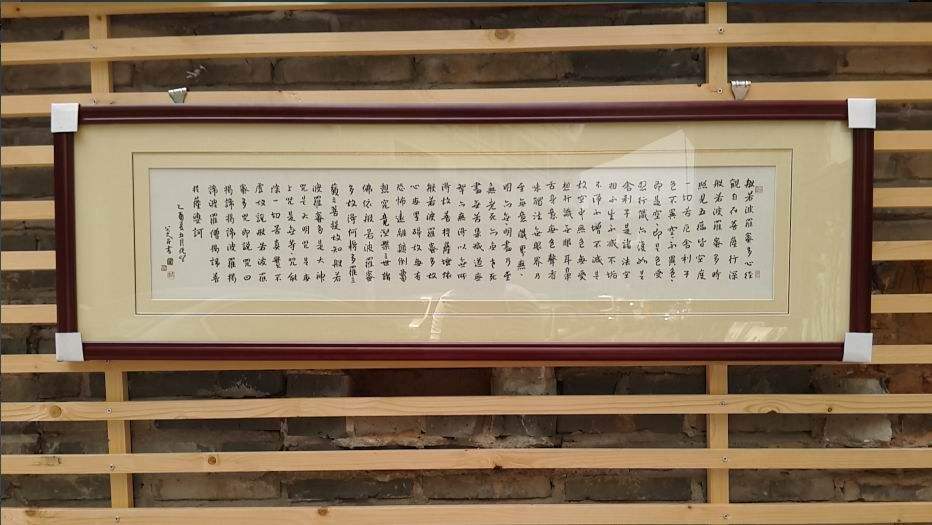 般若波羅蜜多心經
觀自在菩薩行深
般若波羅蜜多時
照見五蘊皆空度
一切苦厄舍利子
色不異空空不異色
即是空空即是色受
想行識亦復如是
舍利子是諸法空
相不生不滅不垢
不淨不增不減是
故空中無色無受
想行識無眼耳鼻
舌身意無色聲香
味觸法無眼界乃
至無意識界無
明亦無無明盡乃至
無老死亦無老死
盡無苦集滅道無
智亦無得以無所
得故菩提薩埵依
般若波羅蜜多故
心無罣礙故無有
恐怖遠離顛倒夢
想究竟涅槃三世諸
佛依般若波羅蜜
多故得阿耨多羅三
藐三菩提故知般若
波羅蜜多是大神
咒是大明咒是無
上咒是無等等咒能
除一切苦真實不
虛故說般若波羅
蜜多咒即說咒曰
揭諦揭諦波羅揭
諦波羅僧揭諦菩
提薩婆訶